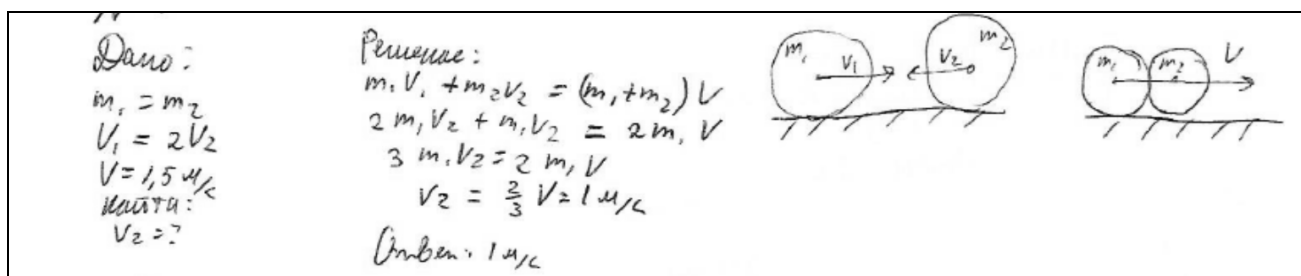 Дано:
m₁ = m₂
V₁ = 2V₂
V = 1,5 м/с
Найти:
V₂ = ?
Решение:
m₁V₁ + m₂V₂ = (m₁ + m₂) V
2 m₁V₂ + m₁V₂ = 2 m₁ V
3 m₁V₂ = 2 m₁ V
V₂ = 2/3 V = 1 м/с
Ответ: 1 м/с
m₁ V₁ V₂ m₂
m₁ m₂ V